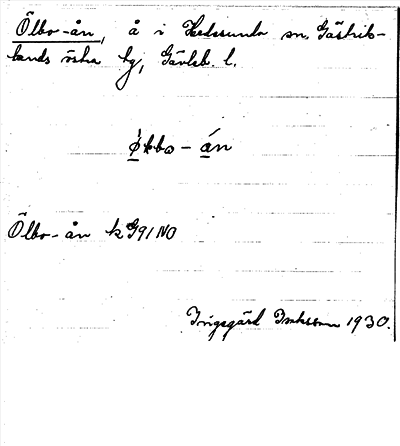 Ölbo-ån, å i Hedesunda sn, Gästrik-
lands östra hg, Gävleb. l.
Ölbo-ån k G91NO
Ingegärd Isaksson 1930.